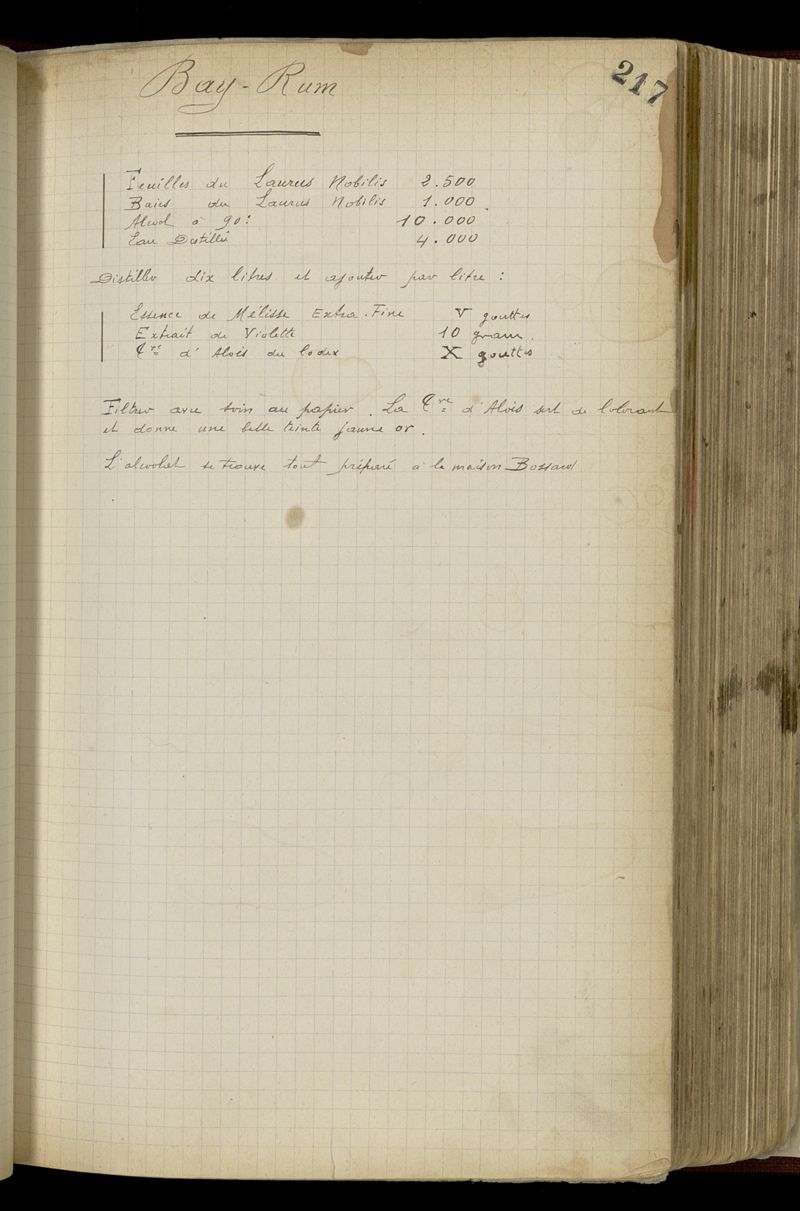 Bay-Rum
217
Feuilles du Laurus Nobilis 2.500
Baies du Laurus Nobilis 1.000
Alcool à 90° 10.000
Eau Distillée 4.000
Distiller dix litres et ajouter par litre :
Essence de Mélisse Extra-Fine V gouttes
Extrait de Violette 10 gram.
Tre d'Aloès du Codex X gouttes
Filtrer avec soin au papier. La Tre d'Aloès sert de Colorant
et donne une belle teinte jaune or.
L'alcoolat se trouve tout préparé à la maison